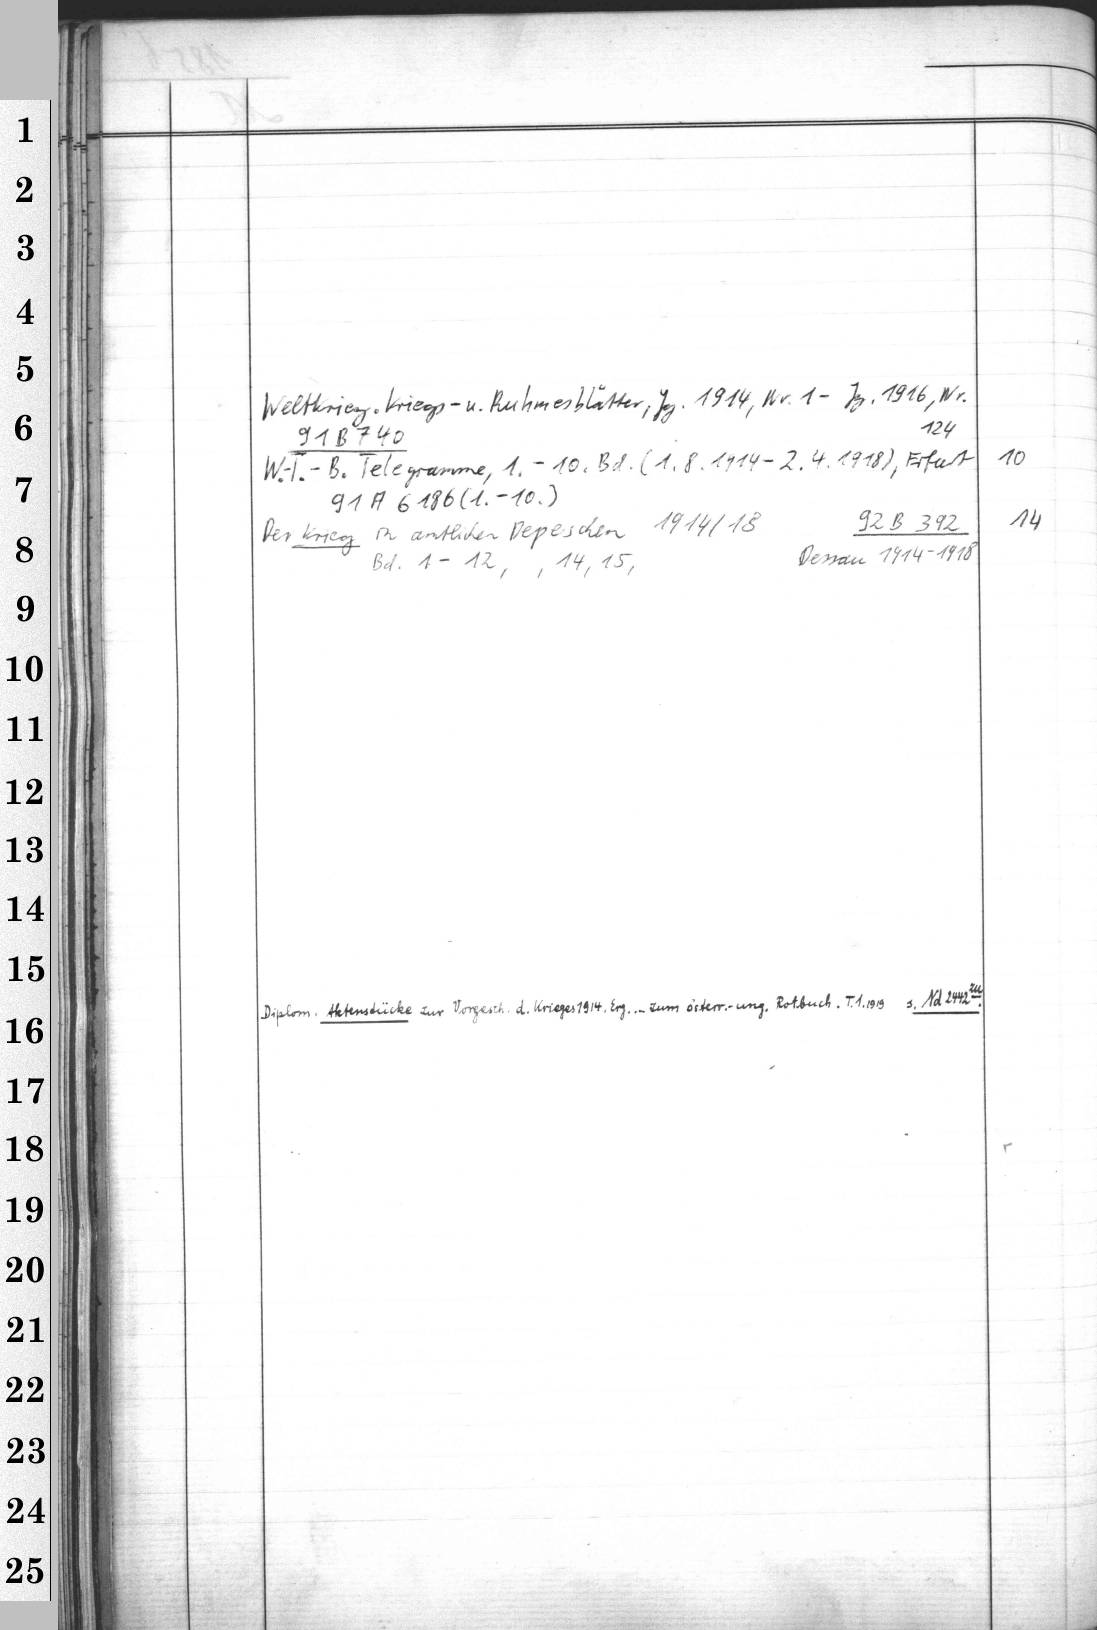 1
2
3
4
5
6
7
8
9
10
11
12
13
14
15
16
17
18
19
20
21
22
23
24
25
Weltkrieg. Kriegs- u. Ruhmesblätter, Jg. 1914, Nr. 1 - Jg. 1916, Nr. 124
91 B 740
W.-T.-B. Telegramme, 1.-10. Bd. (1.8.1914-2.4.1918), Erfurt 10
91 A 6186 (1.-10.)
Der Krieg in amtlichen Depeschen 1914/18 92 B 392 14
Bd. 1-12, , 14, 15, Dessau 1914-1918
Diplom. Aktenstücke zur Vorgesch. d. Krieges 1914. Erg... zum österr.-ung. Rotbuch. T.1. 1919 s. Nd 2442 zu.